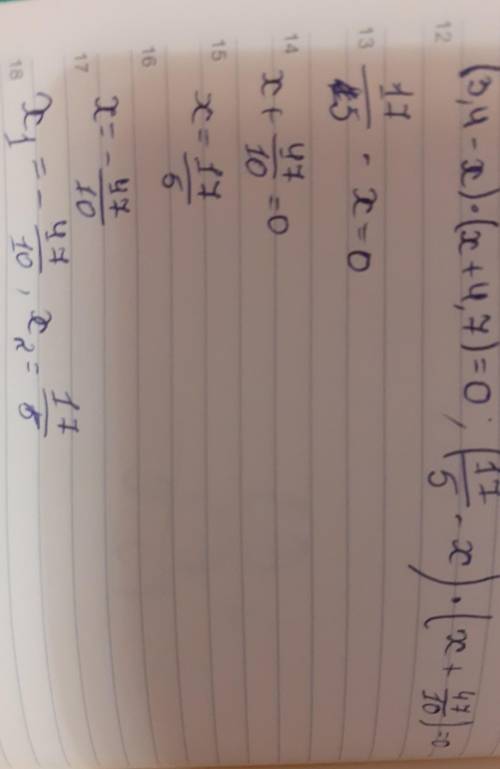 12 (3,4-x)·(x+4,7)=0; (17/5 - x)·(x+47/10)=0
13 17/5 - x=0
14 x+47/10=0
15 x=17/5
16
17 x=-47/10
18 x₁=-47/10, x₂=17/5